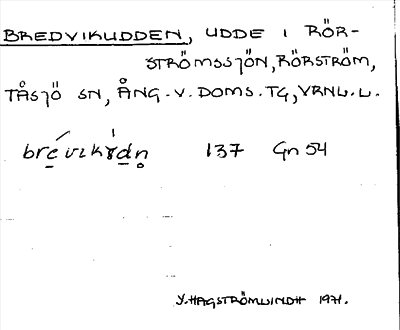 BREDVIKUDDEN, UDDE I RÖR-
STRÖMSSJÖN, RÖRSTRÖM,
TÅSJÖ SN, ÅNG.V.DOMS.TG, VRNL.L.
137 Gn 54
Y. HAGSTRÖMLINDH 1971.